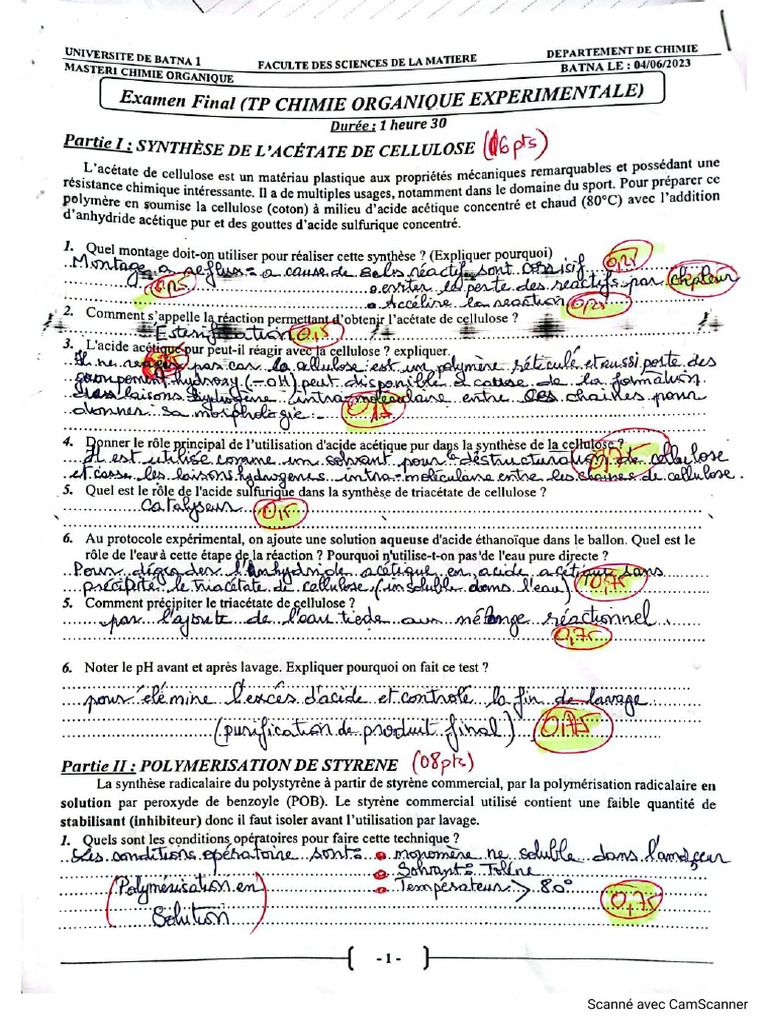 UNIVERSITE DE BATNA 1 FACULTE DES SCIENCES DE LA MATIERE DEPARTEMENT DE CHIMIE
MASTER1 CHIMIE ORGANIQUE BATNA LE : 04/06/2023
Examen Final (TP CHIMIE ORGANIQUE EXPERIMENTALE)
Durée : 1 heure 30
Partie I : SYNTHÈSE DE L'ACÉTATE DE CELLULOSE (06pts)
L'acétate de cellulose est un matériau plastique aux propriétés mécaniques remarquables et possédant une
résistance chimique intéressante. Il a de multiples usages, notamment dans le domaine du sport. Pour préparer ce
polymère en soumise la cellulose (coton) à milieu d'acide acétique concentré et chaud (80°C) avec l'addition
d'anhydride acétique pur et des gouttes d'acide sulfurique concentré.
1. Quel montage doit-on utiliser pour réaliser cette synthèse ? (Expliquer pourquoi) 0,25
Montage a reflux = a cause de sels réactif sont
0,25 eviter la perte des reactifs par
Accélire la reaction 0,25
2. Comment s'appelle la réaction permettant d'obtenir l'acétate de cellulose ?
Esterification 0,5
3. L'acide acétique pur peut-il réagir avec la cellulose ? expliquer.
Il ne pas car la cellulose est un polymère réticulé et aussi porte des
groupement hydroxy (-OH) peut disponible à cause de la formation
liaisons hydrogène intra-moléculaire entre ces chaines pour
donner sa morphologie
4. Donner le rôle principal de l'utilisation d'acide acétique pur dans la synthèse de la cellulose ?
Il est utilisé comme un solvant pour la déstructuration de cellulose 0,75
et casse les liaisons hydrogens intra-moléculaire entre les chaines de cellulose.
5. Quel est le rôle de l'acide sulfurique dans la synthèse de triacétate de cellulose ?
Catalyseur 0,5
6. Au protocole expérimental, on ajoute une solution aqueuse d'acide éthanoïque dans le ballon. Quel est le
rôle de l'eau à cette étape de la réaction ? Pourquoi n'utilise-t-on pas de l'eau pure directe ?
Pour dégrader l'anhydride acétique en acide acétique dans
précipite le triacétate de cellulose (insoluble dans l'eau) 0,75
5. Comment précipiter le triacétate de cellulose ?
par l'ajoute de l'eau tiede aux mélange réactionnel
0,75
6. Noter le pH avant et après lavage. Expliquer pourquoi on fait ce test ?
pour élémine l'excés d'acide et controlé la fin de lavage
(purification de produit final) 0,75
Partie II : POLYMERISATION DE STYRENE (08pts)
La synthèse radicalaire du polystyrène à partir de styrène commercial, par la polymérisation radicalaire en
solution par peroxyde de benzoyle (POB). Le styrène commercial utilisé contient une faible quantité de
stabilisant (inhibiteur) donc il faut isoler avant l'utilisation par lavage.
1. Quels sont les conditions opératoires pour faire cette technique ?
Les conditions opératoire sont = monomère ne soluble dans
Solvant = Tolène
(Polymérisation en Temperateur > 80°
Solution) 0,75
- 1 -
Scanné avec CamScanner